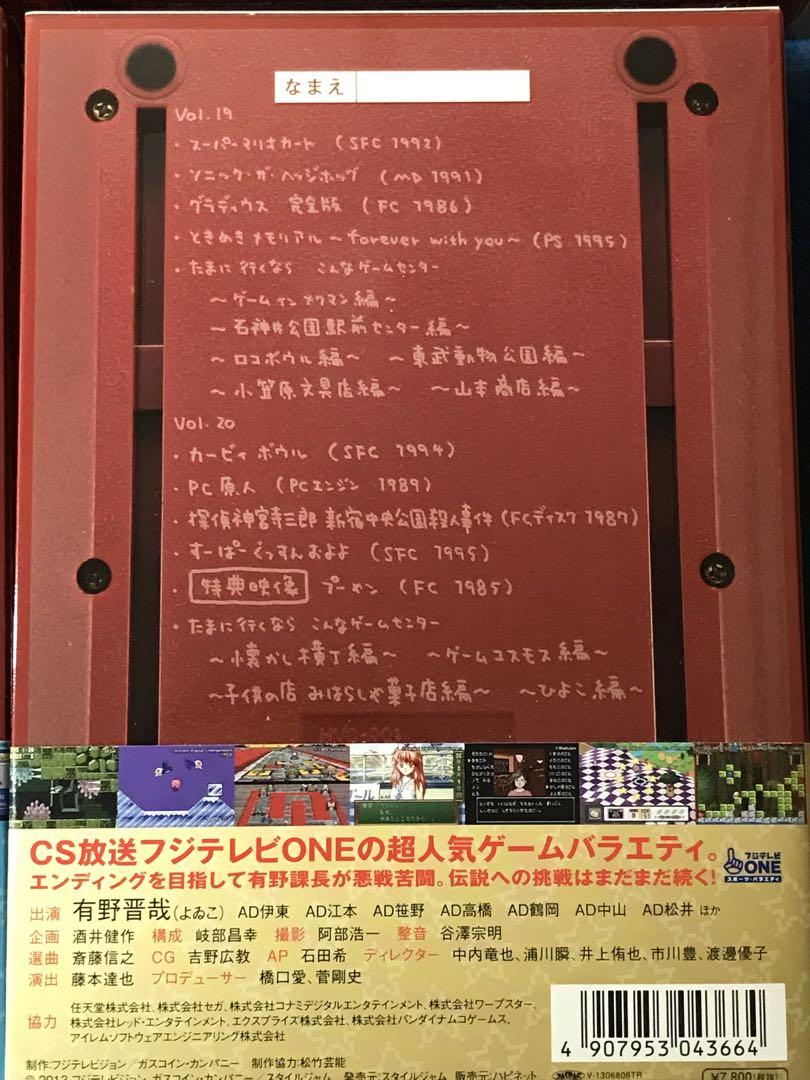 なまえ
Vol.19
・スーパーマリオカート (SFC 1992)
・ソニック・ザ・ヘッジホッグ (MD 1991)
・グラディウス 完全版 (FC 1986)
・ときめきメモリアル〜forever with you〜(PS 1995)
・たまに行くなら こんなゲームセンター
〜ゲームインメクマン編〜
〜石神井公園駅前センター編〜
〜ロコボウル編〜 〜東武動物公園編〜
〜小笠原文具店編〜 〜山本商店編〜
Vol.20
・カービィボウル (SFC 1994)
・PC原人 (PCエンジン 1989)
・探偵神宮寺三郎 新宿中央公園殺人事件(FCディスク 1987)
・すーぱーぐっすんおよよ (SFC 1995)
・特典映像 プーヤン (FC 1985)
・たまに行くなら こんなゲームセンター
〜懐かし横丁編〜 〜ゲームコスモス編〜
〜子供の店 みはらしや菓子店編〜 〜ひよこ編〜
CS放送フジテレビONEの超人気ゲームバラエティ。
エンディングを目指して有野課長が悪戦苦闘。伝説への挑戦はまだまだ続く!
フジテレビ
ONE
スポーツ・バラエティ
出演 有野晋哉(よゐこ) AD伊東 AD江本 AD笹野 AD高橋 AD鶴岡 AD中山 AD松井 ほか
企画 酒井健作 構成 岐部昌幸 撮影 阿部浩一 整音 谷澤宗明
選曲 斎藤信之 CG 吉野広教 AP 石田希 ディレクター 中内竜也、浦川瞬、井上侑也、市川豊、渡邊優子
演出 藤本達也 プロデューサー 橋口愛、菅剛史
協力 任天堂株式会社、株式会社セガ、株式会社コナミデジタルエンタテインメント、株式会社ワープスター、
株式会社レッド・エンタテインメント、エクスプライズ株式会社、株式会社バンダイナムコゲームス、
アイレムソフトウェアエンジニアリング株式会社
4 907953 043664
制作:フジテレビジョン/ガスコイン・カンパニー 制作協力:松竹芸能
V-1306806TR
¥7,800(税抜)
© 2013 フジテレビジョン、ガスコイン・カンパニー/スタイルジャム 発売元:スタイルジャム 販売元:ハピネット